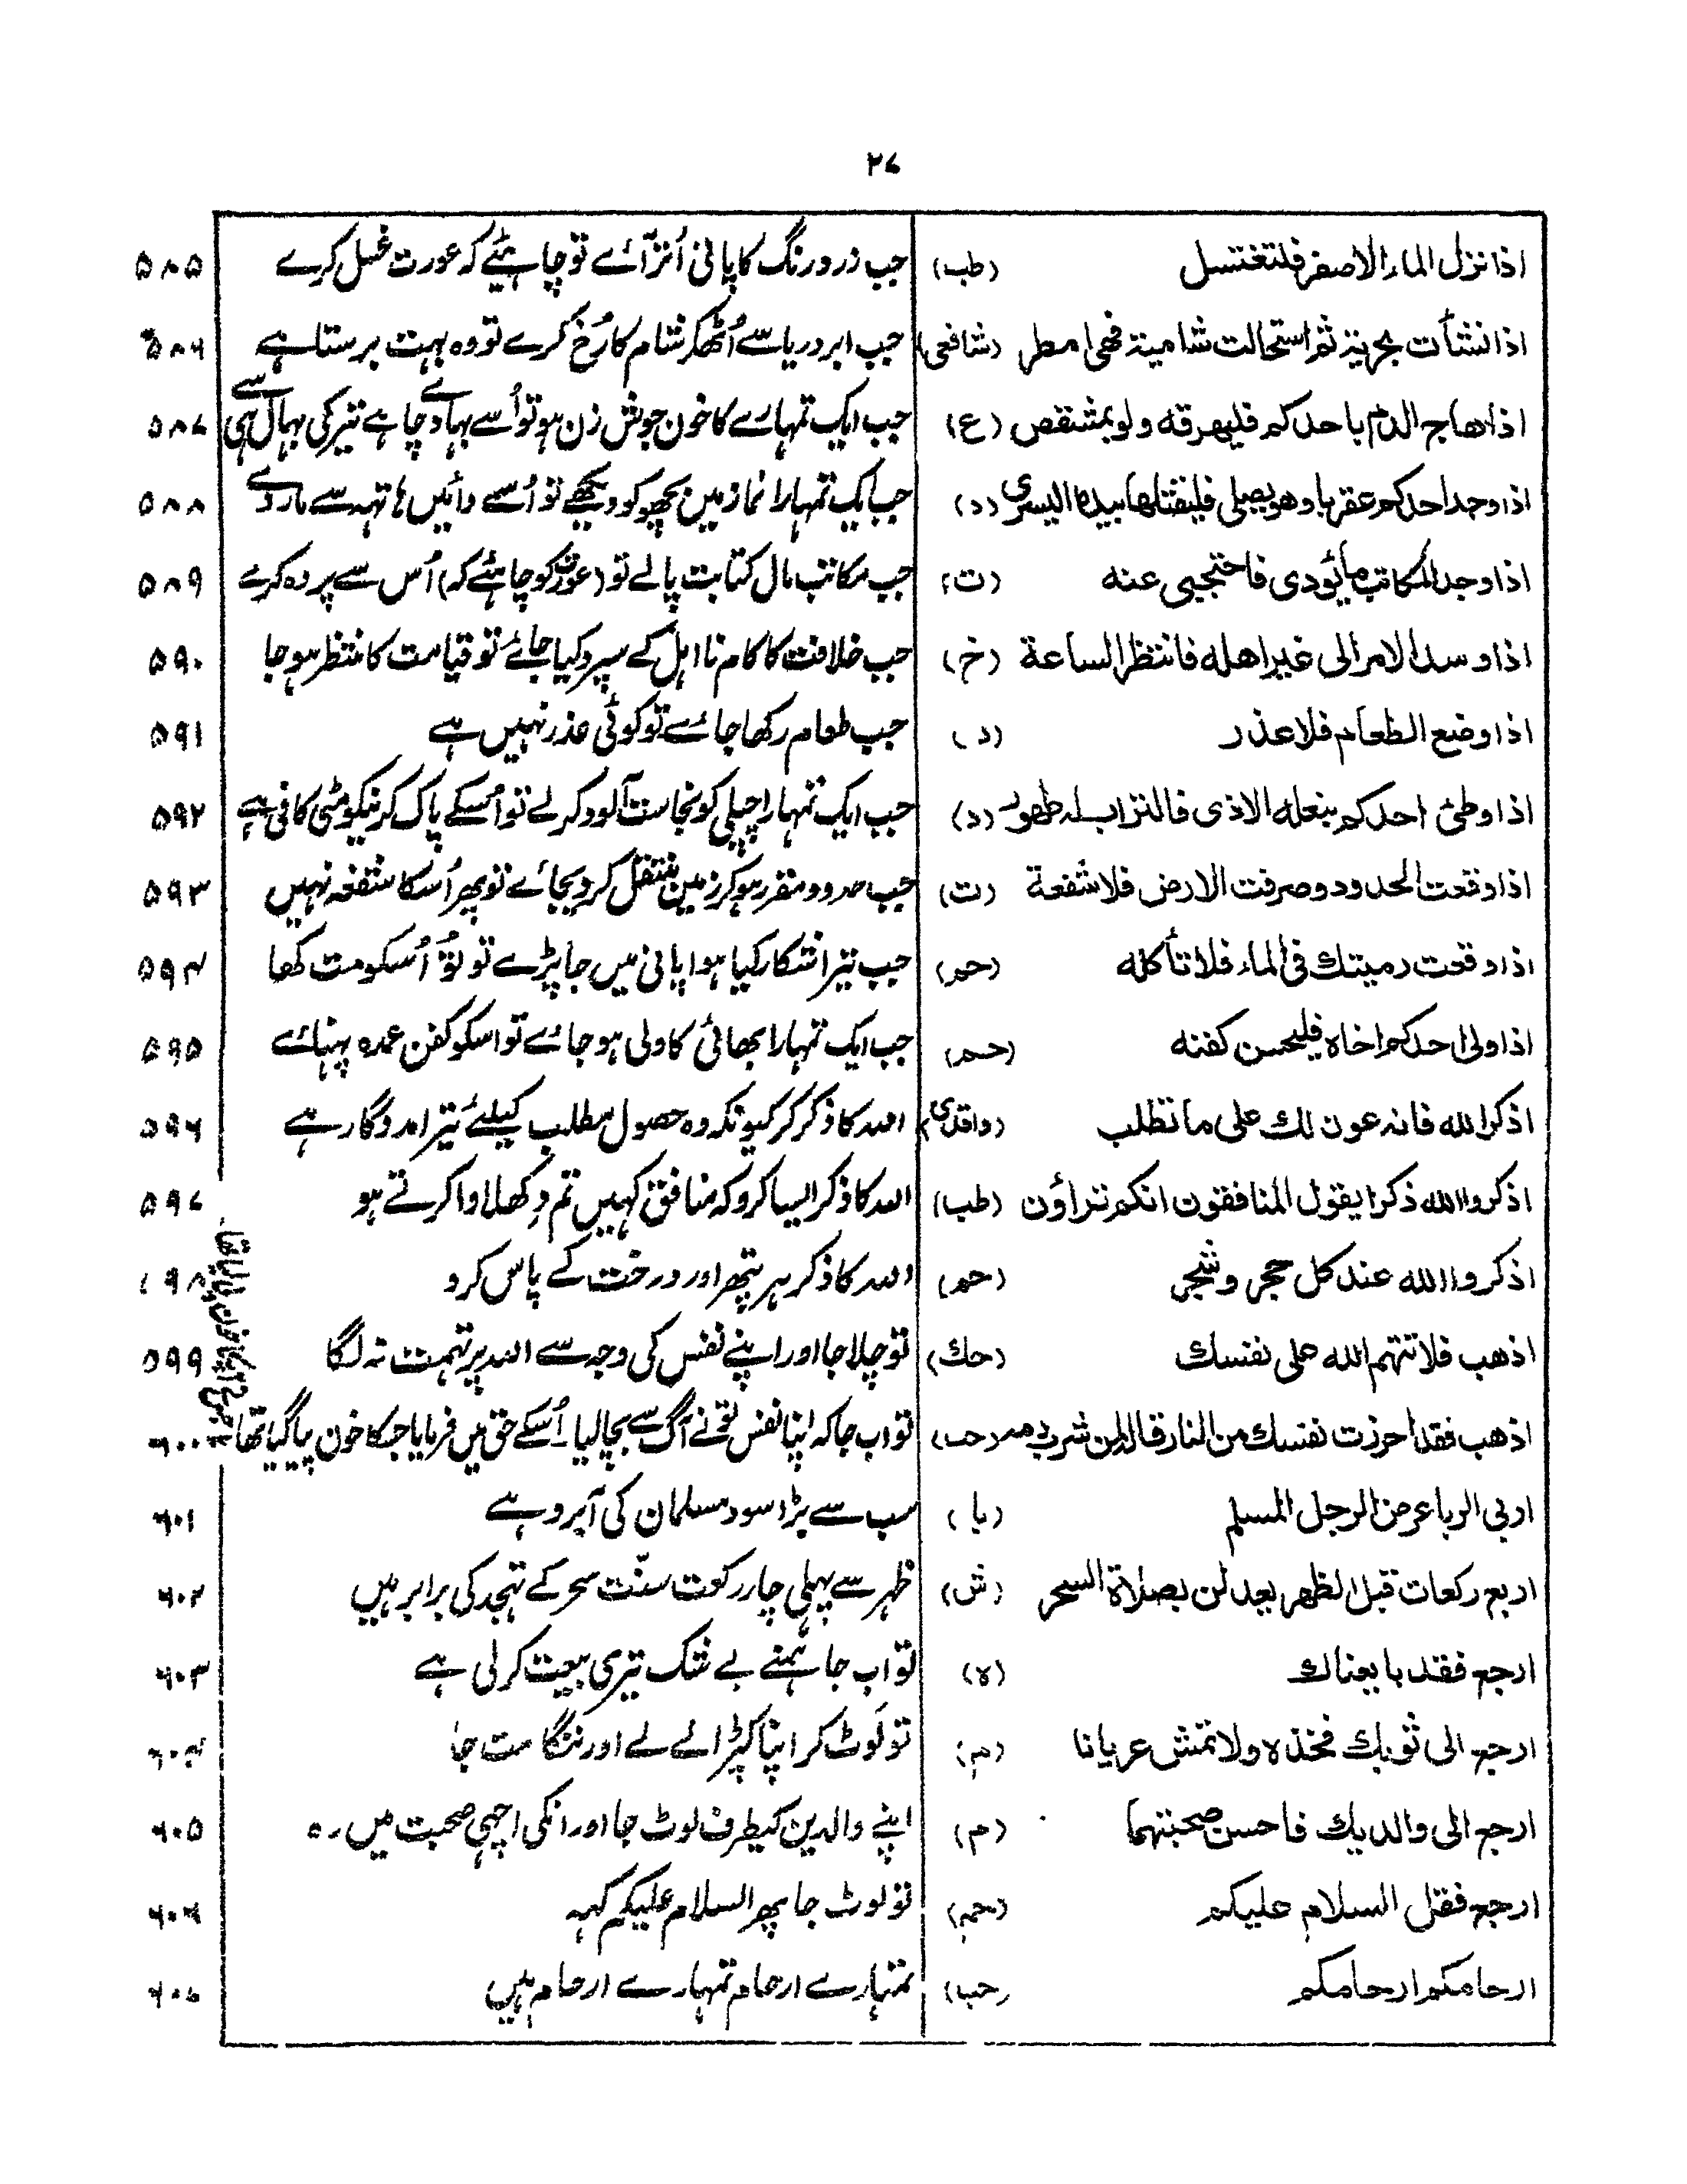 ۲۷
اذا نزل الماء الاصفر فلتغتسل (طب) جب زرد رنگ کا پانی اُتر آئے تو چاہئیے کہ عورت غسل کرے ۵۸۵
اذا نشأت بحرية ثم استحالت شامية فهى امطر (شافعى) جب ابر دریا سے اُٹھکر شام کا رُخ کرے تو وہ بہت برستا ہے ۵۸۶
اذا هاج الدم باحدكم فليهرقه ولو بمشقص (ع) جب ایک تمہارے کا خون جوش زن ہو تو اُسے بہا دے چاہے تیر کی بہال ہی سے ۵۸۷
اذا وجد احدكم عقربا وهو يصلى فليقتلها بيده اليسرى (د) جب ایک تمہارا نماز مین بچھو کو دیکھے تو اُسے دائیں ہاتہہ سے مار دے ۵۸۸
اذا وجد المكاتب ما يؤدى فاحتجبى عنه (ت) جب مکاتب مال کتابت پالے تو (عورت کو چاہئے کہ) اُس سے پردہ کرے ۵۸۹
اذا وسد الامر الى غير اهله فانتظر الساعة (خ) جب خلافت کا کام نا اہل کے سپرد کیا جائے تو قیامت کا منتظر ہو جا ۵۹۰
اذا وضع الطعام فلا عذر (د) جب طعام رکھا جائے تو کوئی عذر نہیں ہے ۵۹۱
اذا وطئ احدكم بنعله الاذى فالتراب له طهور (د) جب ایک تمہارا چپلی کو نجاست آلود کرلے تو اُسکے پاک کرنیکو مٹی کافی ہے ۵۹۲
اذا وقعت الحدود وصرفت الارض فلا شفعة (ت) جب حدود مقرر ہوکر زمین منتقل کردیجائے تو پھر اُسکا شفعہ نہیں ۵۹۳
اذا وقعت رميتك فى الماء فلا تأكله (حم) جب تیرا شکار کیا ہوا پانی میں جا پڑے تو تُو اُسکو مت کھا ۵۹۴
اذا ولى احدكم اخاه فليحسن كفنه (حم) جب ایک تمہارا بھائی کا ولی ہو جائے تو اسکو کفن عمدہ پہنائے ۵۹۵
اذكر الله فانه عون لك على ما تطلب (واقدى) اللہ کا ذکر کر کیونکہ وہ حصول مطلب کیلئے تیرا مددگار ہے ۵۹۶
اذكروا الله ذكرا يقول المنافقون انكم تراؤن (طب) اللہ کا ذکر ایسا کرو کہ منافق کہیں تم دکھلاوا کرتے ہو ۵۹۷
اذكروا الله عند كل حجر وشجر (حم) اللہ کا ذکر ہر پتھر اور درخت کے پاس کرو ۵۹۸
اذهب فلا تتهم الله على نفسك (حك) تو چلا جا اور اپنے نفس کی وجہ سے اللہ پر تہمت نہ لگا ۵۹۹
اذهب فقد احرزت نفسك من النار قاله لمن شرب دمه (حب) تو اب جا کہ اپنا نفس تو نے آگ سے بچا لیا۔ اُسکے حق میں فرمایا جسکا خون پیا گیا تھا ۶۰۰
اربى الربا عرض الرجل المسلم (با) سب سے بڑا سود مسلمان کی آبرو ہے ۶۰۱
اربع ركعات قبل الظهر يعدلن بصلاة السحر (ش) ظہر سے پہلی چار رکعت سنّت سحر کے تہجد کی برابر ہیں ۶۰۲
ارجع فقد بايعناك (ه) تو اب جا ہمنے بے شک تیری بیعت کر لی ہے ۶۰۳
ارجع الى ثوبك فخذه ولا تمش عريانا (م) تو لَوٹ کر اپنا کپڑا لے لے اور ننگا مت جا ۶۰۴
ارجع الى والديك فاحسن صحبتهما (م) اپنے والدین کیطرف لوٹ جا اور انکی اچہی صحبت میں رہ ۶۰۵
ارجع فقل السلام عليكم (حم) تو لوٹ جا پھر السلام علیکم کہہ ۶۰۶
ارحامكم ارحامكم (حب) تمہارے ارحام تمہارے ارحام ہیں ۶۰۷